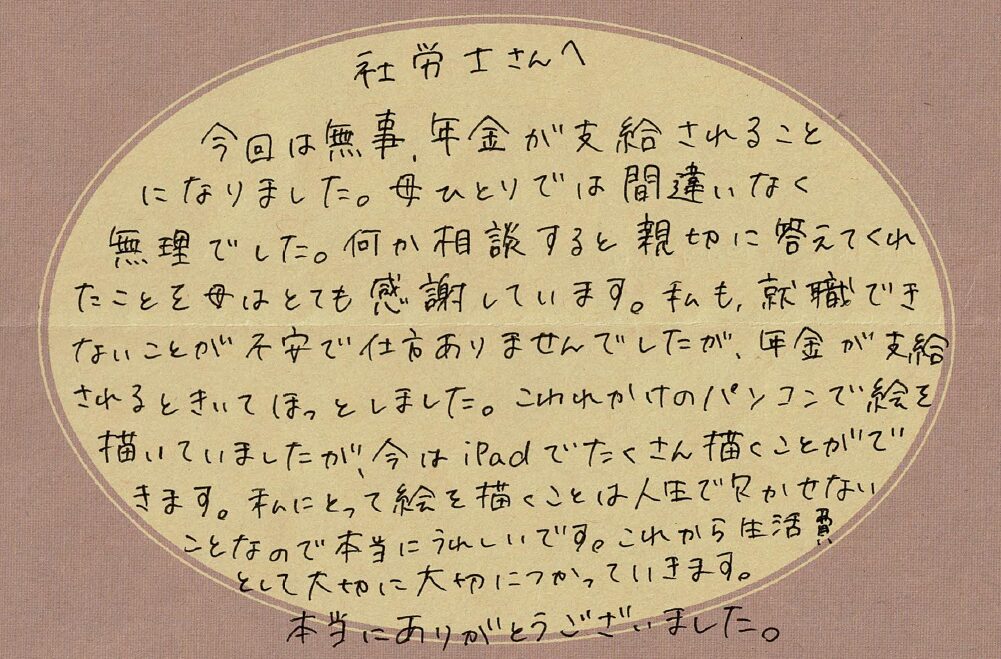 社労士さんへ
今回は無事、年金が支給されること
になりました。母ひとりでは間違いなく
無理でした。何か相談すると親切に答えてくれ
たことを母はとても感謝しています。私も、就職でき
ないことが不安で仕方ありませんでしたが、年金が支給
されるときいてほっとしました。こわれかけのパソコンで絵を
描いていましたが、今はiPadでたくさん描くことがで
きます。私にとって絵を描くことは人生で欠かせない
ことなので本当にうれしいです。これから生活費
として大切に大切につかっていきます。
本当にありがとうございました。